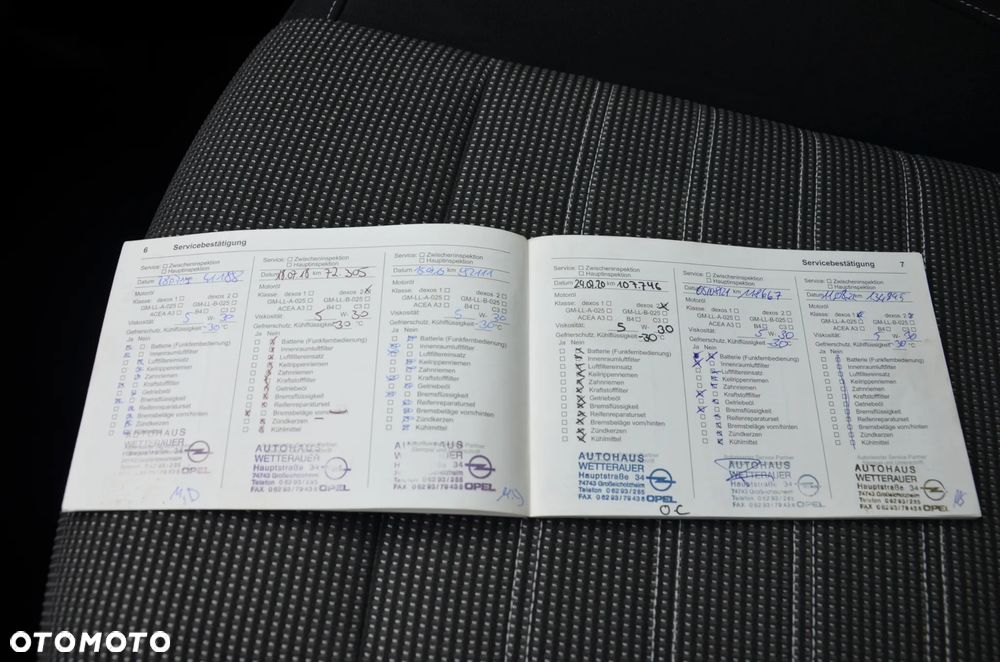 6 Servicebestätigung
Service: Zwischeninspektion
Hauptinspektion
Datum 41182
Motoröl
Klasse: dexos 1 dexos 2
GM-LL-A-025 GM-LL-B-025
ACEA A3 B4 C3
Viskosität: 5 W- 30
Gefrierschutz, Kühlflüssigkeit -30 °C
Ja Nein
Batterie (Funkfernbedienung)
Innenraumluftfilter
Luftfiltereinsatz
Keilrippenriemen
Zahnriemen
Kraftstofffilter
Getriebeöl
Bremsflüssigkeit
Reifenreparaturset
Bremsbeläge vorn/hinten
Zündkerzen
AUTOHAUS
WETTERAUER
Hauptstraße 34
74743 Großeicholzheim
Telefon 06293/265
FAX 06293/79436 OPEL
M,D
Service: Zwischeninspektion
Hauptinspektion
Datum 18.07.18 km 72.305
Motoröl
Klasse: dexos 1 dexos 2
GM-LL-A-025 GM-LL-B-025
ACEA A3 B4 C3
Viskosität: 5 W- 30
Gefrierschutz, Kühlflüssigkeit -30 °C
Ja Nein
Batterie (Funkfernbedienung)
Innenraumluftfilter
Luftfiltereinsatz
Keilrippenriemen
Zahnriemen
Kraftstofffilter
Getriebeöl
Bremsflüssigkeit
Reifenreparaturset
Bremsbeläge vorn/hinten
Zündkerzen
Kühlmittel
AUTOHAUS
WETTERAUER
Hauptstraße 34
74743 Großeicholzheim
Telefon 06293/265
FAX 06293/79436 OPEL
Service: Zwischeninspektion
Hauptinspektion
Datum km 92111
Motoröl
Klasse: dexos 1 dexos 2
GM-LL-A-025 GM-LL-B-025
ACEA A3 B4 C3
Viskosität: 5 W- 30
Gefrierschutz, Kühlflüssigkeit -30 °C
Ja Nein
Batterie (Funkfernbedienung)
Innenraumluftfilter
Luftfiltereinsatz
Keilrippenriemen
Zahnriemen
Kraftstofffilter
Getriebeöl
Bremsflüssigkeit
Reifenreparaturset
Bremsbeläge vorn/hinten
Zündkerzen
Kühlmittel
AUTOHAUS
34
OPEL
Servicebestätigung 7
Service: Zwischeninspektion
Hauptinspektion
Datum 24.09.20 km 107746
Motoröl
Klasse: dexos 1 dexos 2
GM-LL-A-025 GM-LL-B-025
ACEA A3 B4 C3
Viskosität: 5 W- 30
Gefrierschutz, Kühlflüssigkeit -30 °C
Ja Nein
Batterie (Funkfernbedienung)
Innenraumluftfilter
Luftfiltereinsatz
Keilrippenriemen
Zahnriemen
Kraftstofffilter
Getriebeöl
Bremsflüssigkeit
Reifenreparaturset
Bremsbeläge vorn/hinten
Zündkerzen
Kühlmittel
AUTOHAUS
WETTERAUER
Hauptstraße 34
74743 Großeicholzheim
Telefon 06293/265
FAX 06293/79436 OPEL
O.C
Service: Zwischeninspektion
Hauptinspektion
Datum km
Motoröl
Klasse: dexos 1 dexos 2
GM-LL-A-025 GM-LL-B-025
ACEA A3 B4 C3
Viskosität: 5 W- 30
Gefrierschutz, Kühlflüssigkeit -30 °C
Ja Nein
Batterie (Funkfernbedienung)
Innenraumluftfilter
Luftfiltereinsatz
Keilrippenriemen
Zahnriemen
Kraftstofffilter
Getriebeöl
Bremsflüssigkeit
Reifenreparaturset
Bremsbeläge vorn/hinten
Zündkerzen
Kühlmittel
AUTOHAUS
WETTERAUER
Hauptstraße 34
74743 Großeicholzheim
Telefon 06293/265
FAX 06293/79436 OPEL
Service: Zwischeninspektion
Hauptinspektion
Datum
Motoröl
Klasse: dexos 1 dexos 2
GM-LL-A-025 GM-LL-B-025
ACEA A3 B4 C3
Viskosität: 5 W- 30
Gefrierschutz, Kühlflüssigkeit -30 °C
Ja Nein
Batterie (Funkfernbedienung)
Innenraumluftfilter
Luftfiltereinsatz
Keilrippenriemen
Zahnriemen
Kraftstofffilter
Getriebeöl
Bremsflüssigkeit
Reifenreparaturset
Bremsbeläge vorn/hinten
Zündkerzen
Kühlmittel
AUTOHAUS
WETTERAUER
Hauptstraße 34
74743 Großeicholzheim
Telefon 06293/265
FAX 06293/79436 OPEL
OTOMOTO